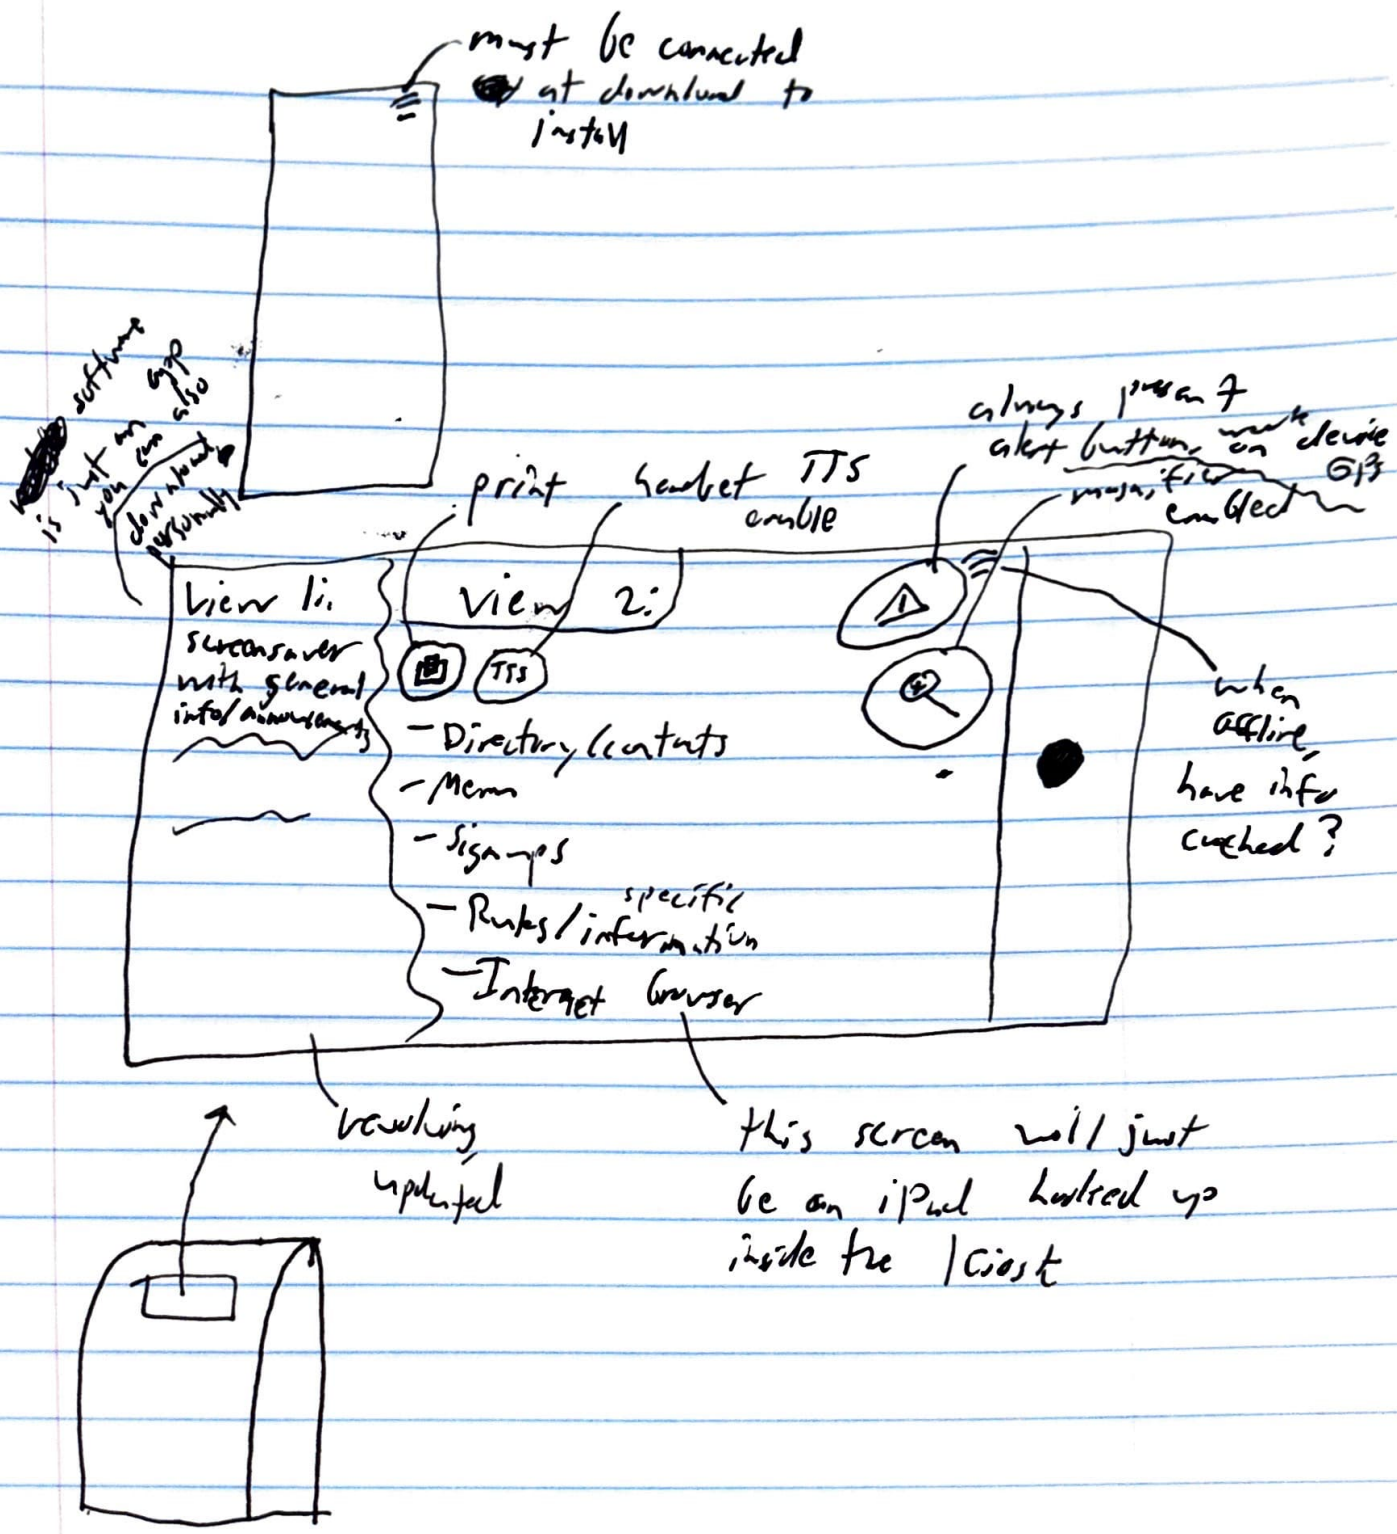 must be connected
at download to
install
software
is just an app
you can also
download
personally
print
headset TTS
enable
always present
alert button, work on device
magnifier
enabled
View 1:
screensaver
with general
info/announcements
view 2:
TTS
- Directory/contacts
- Menu
- Signups
specific
- Rules/information
- Internet browser
when
offline,
have info
cached?
revolving,
updated
this screen will just
be an iPad hooked up
inside the kiosk